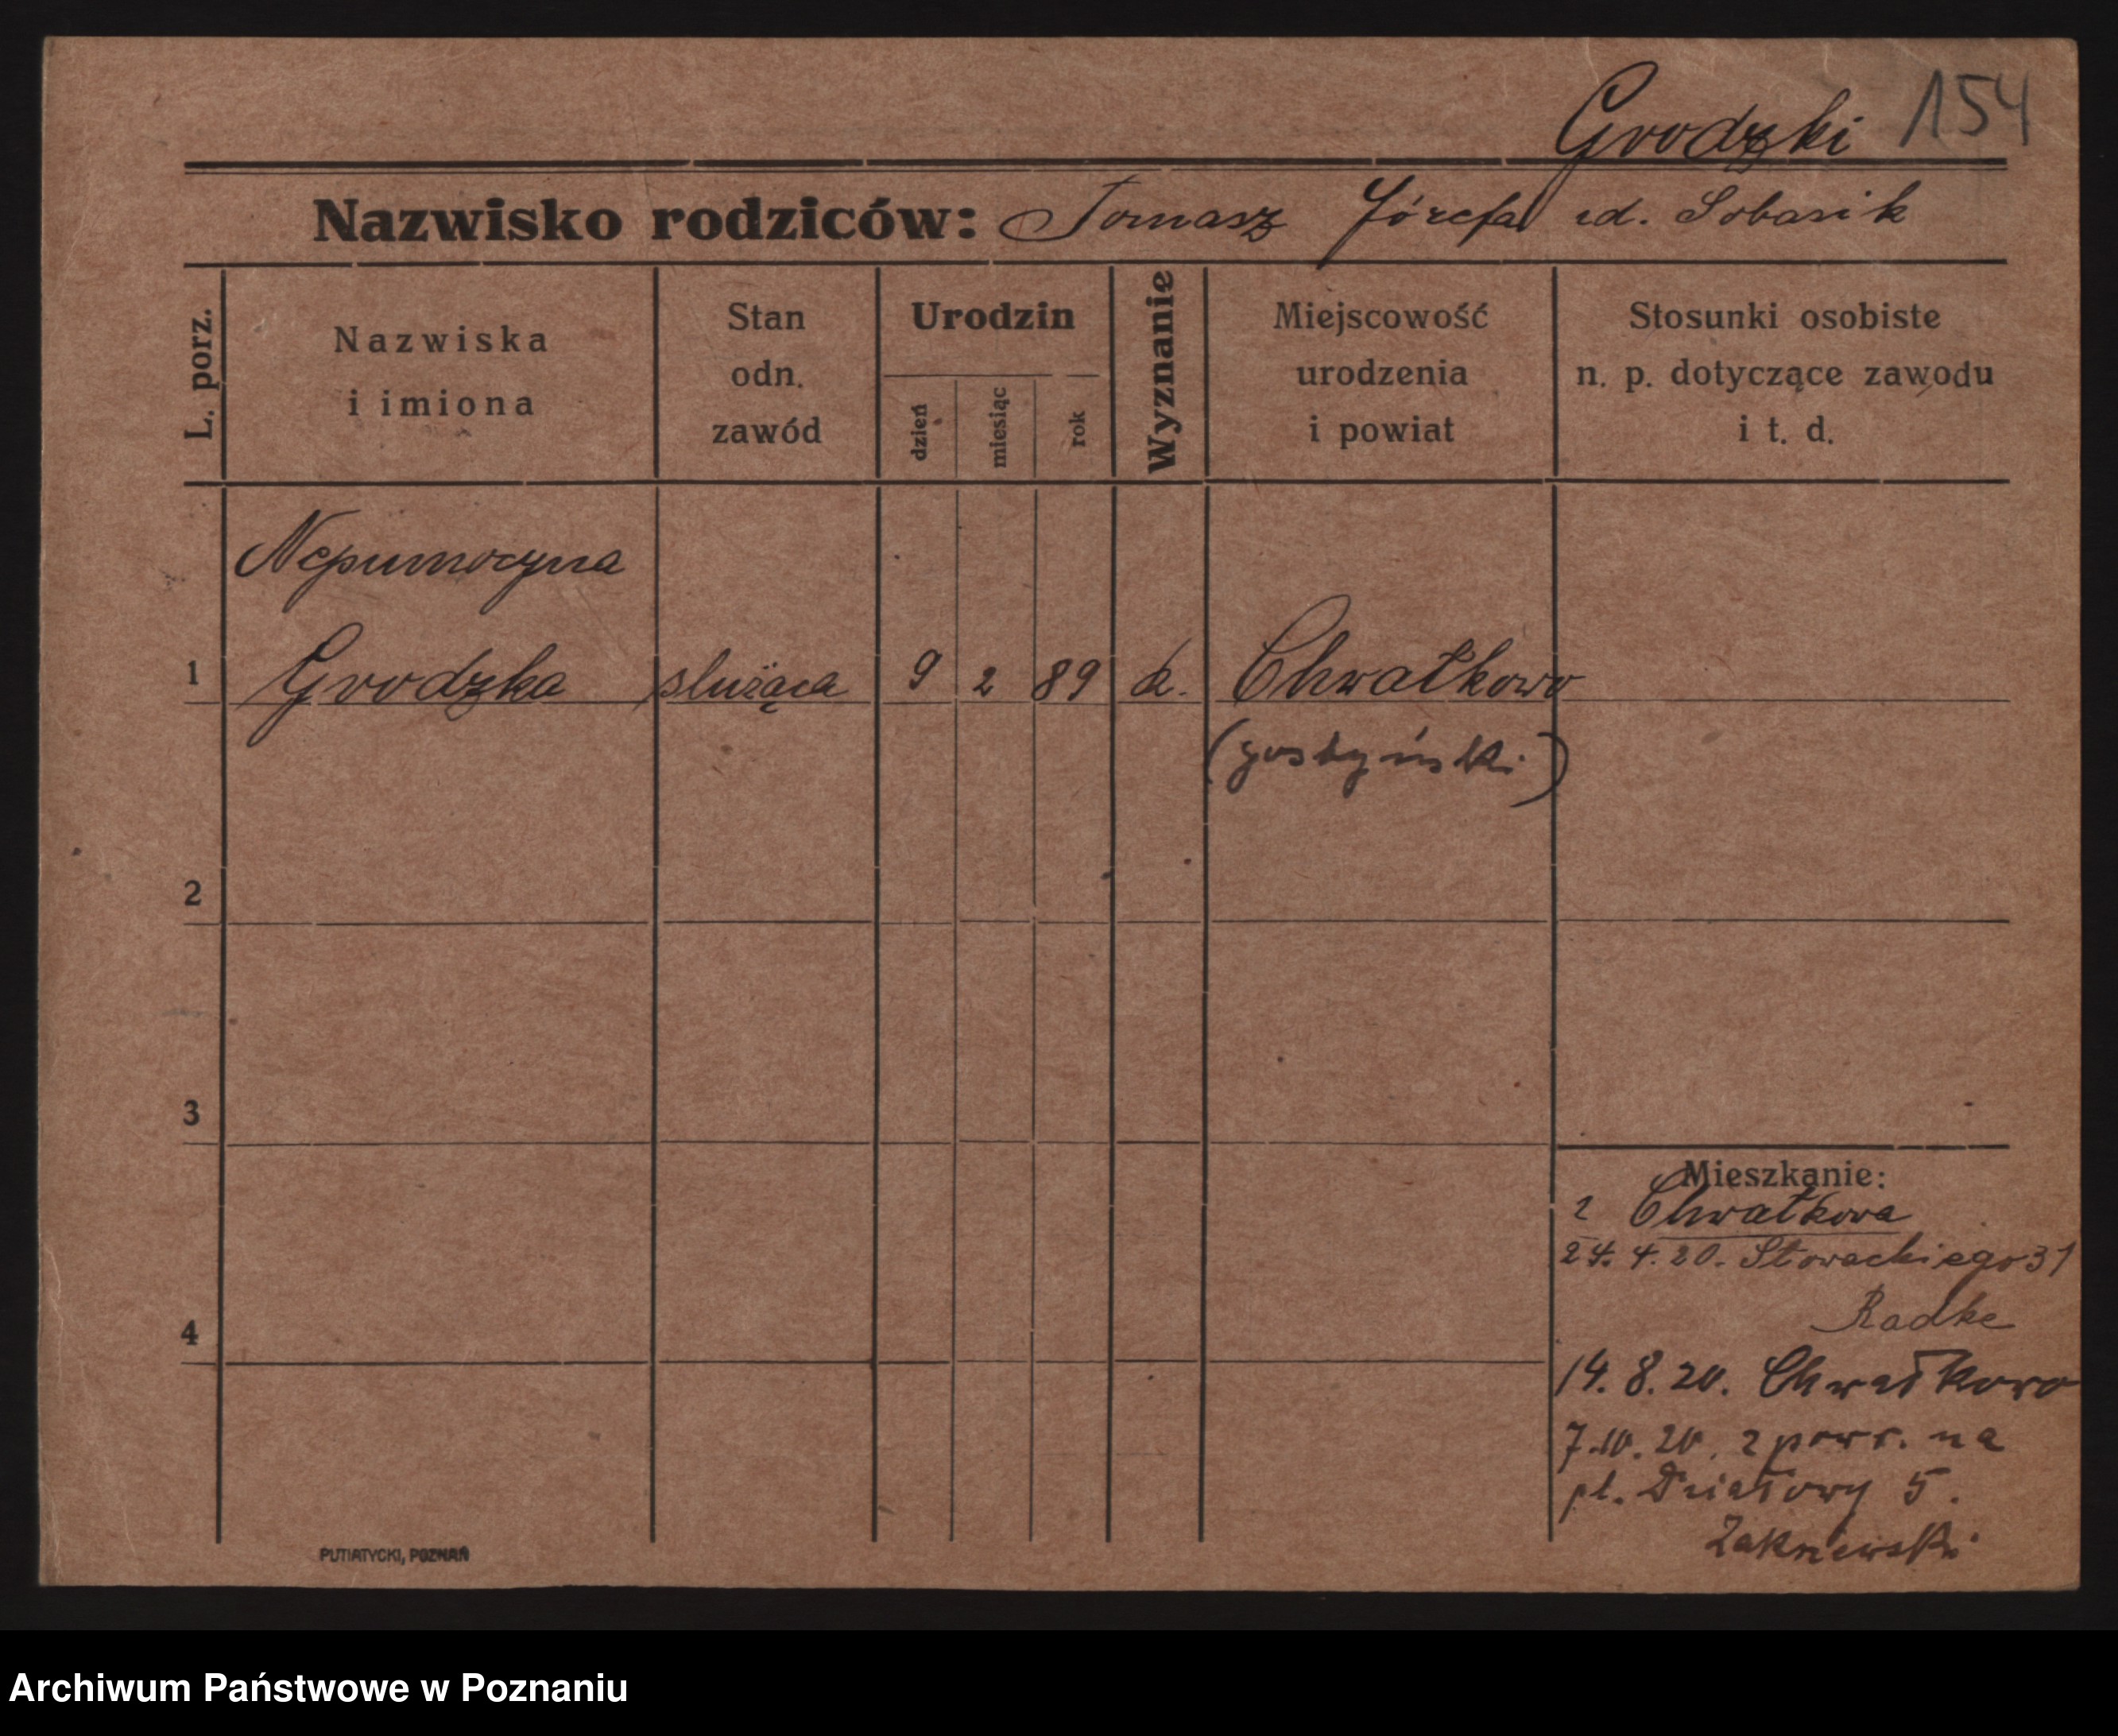 Grodzki 154
Nazwisko rodziców: Tomasz Józefa Sobasik
L. porz.
Nazwiska
i imiona
Stan
odn.
zawód
Urodzin
dzień
miesiąc
rok
Wyznanie
Miejscowość
urodzenia
i powiat
Stosunki osobiste
n. p. dotyczące zawodu
i t. d.
Nepumocyna
1 Grodzka służąca 9 2 89 k. Chwałkowo
(gostyński)
2
3
4
Mieszkanie:
z Chwałkowa
24. 4. 20. Słowackiego 31
Radke
14. 8. 20. Chwałkowo
7.10.20. z powr. na
pl. Działowy 5.
Zakrzewski
PUTIATYCKI, POZNAŃ
Archiwum Państwowe w Poznaniu